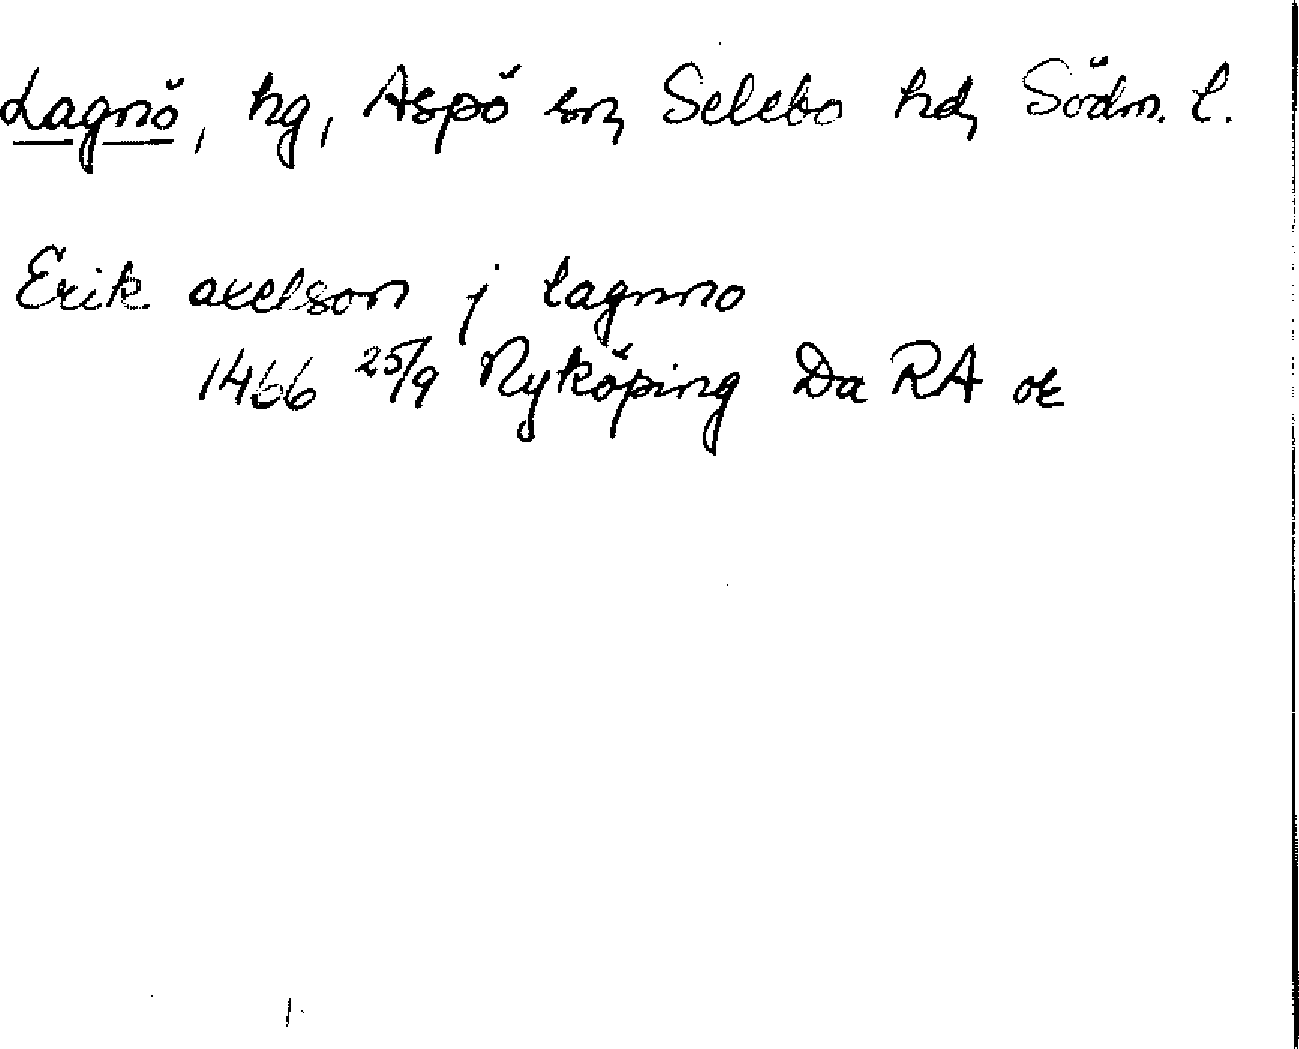 Lagnö, hg, Aspö sn, Selebo hd, Södm. l.
Erik axelson j lagnno
1466 25/9 Nyköping Da RA ok